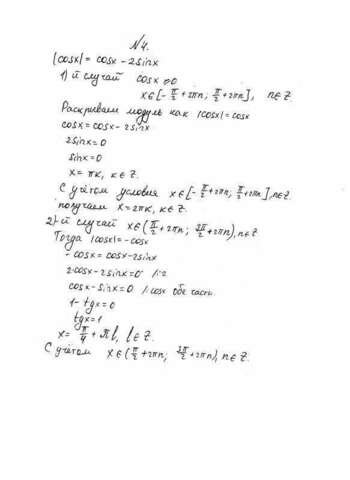 №4.
|cosx| = cosx - 2sinx
1) й случай cosx ≥ 0
x∈[-π/2 + 2πn; π/2 + 2πn], n∈Z.
Раскрываем модуль как |cosx| = cosx
cosx = cosx - 2sinx
2sinx = 0
sinx = 0
x = πk, k∈Z.
С учётом условия x∈[-π/2 + 2πn; π/2 + 2πn], n∈Z.
получаем x = 2πk, k∈Z.
2)-й случай x∈(π/2 + 2πn; 3π/2 + 2πn), n∈Z
Тогда |cosx| = -cosx
- cosx = cosx - 2sinx
2cosx - 2sinx = 0 /:2
cosx - sinx = 0 /:cosx обе части.
1 - tgx = 0
tgx = 1
x = π/4 + πl, l∈Z.
С учётом x∈(π/2 + 2πn; 3π/2 + 2πn), n∈Z.